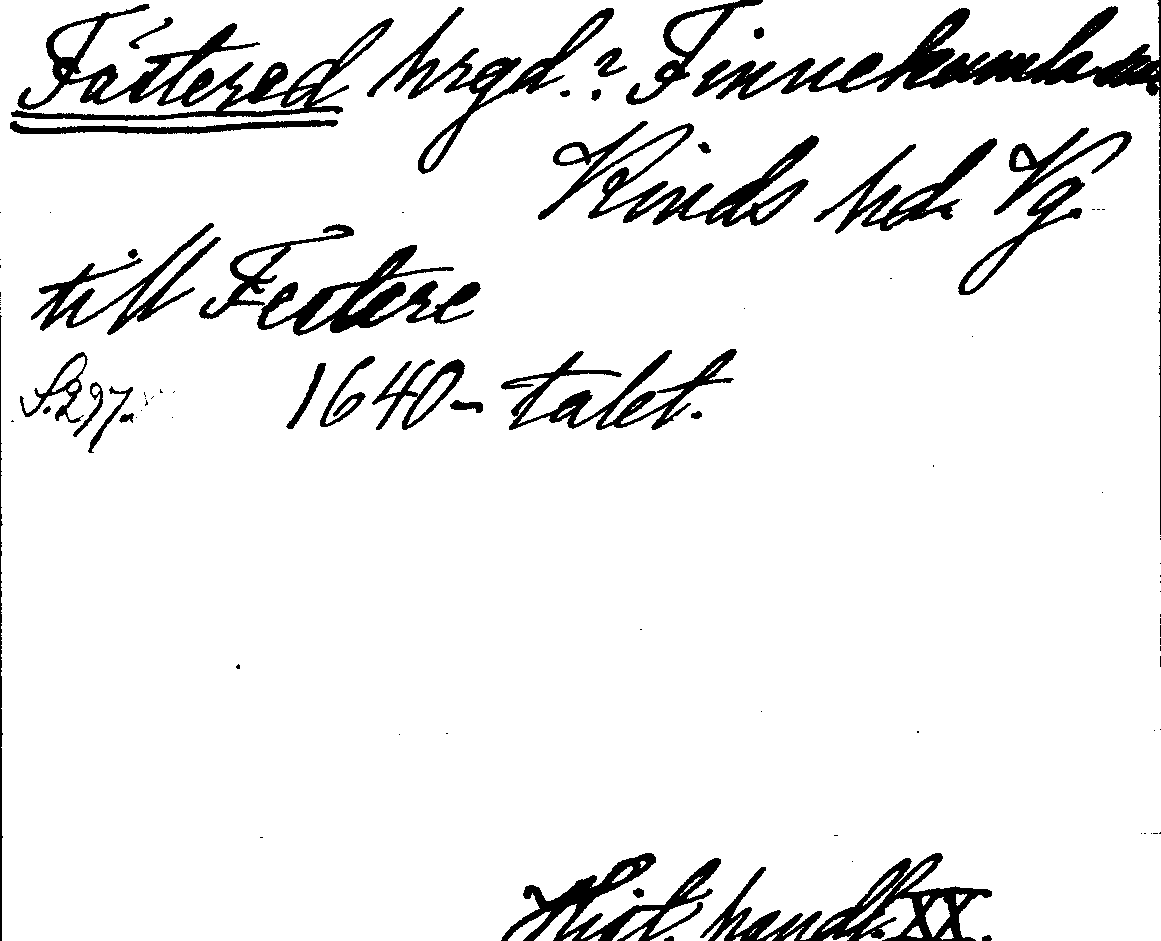 Fästered hrgd.? Finnekumla sn
Kinds hd. Vg.
till Festere
S. 297. 1640-talet.
Hist. handl. XX.